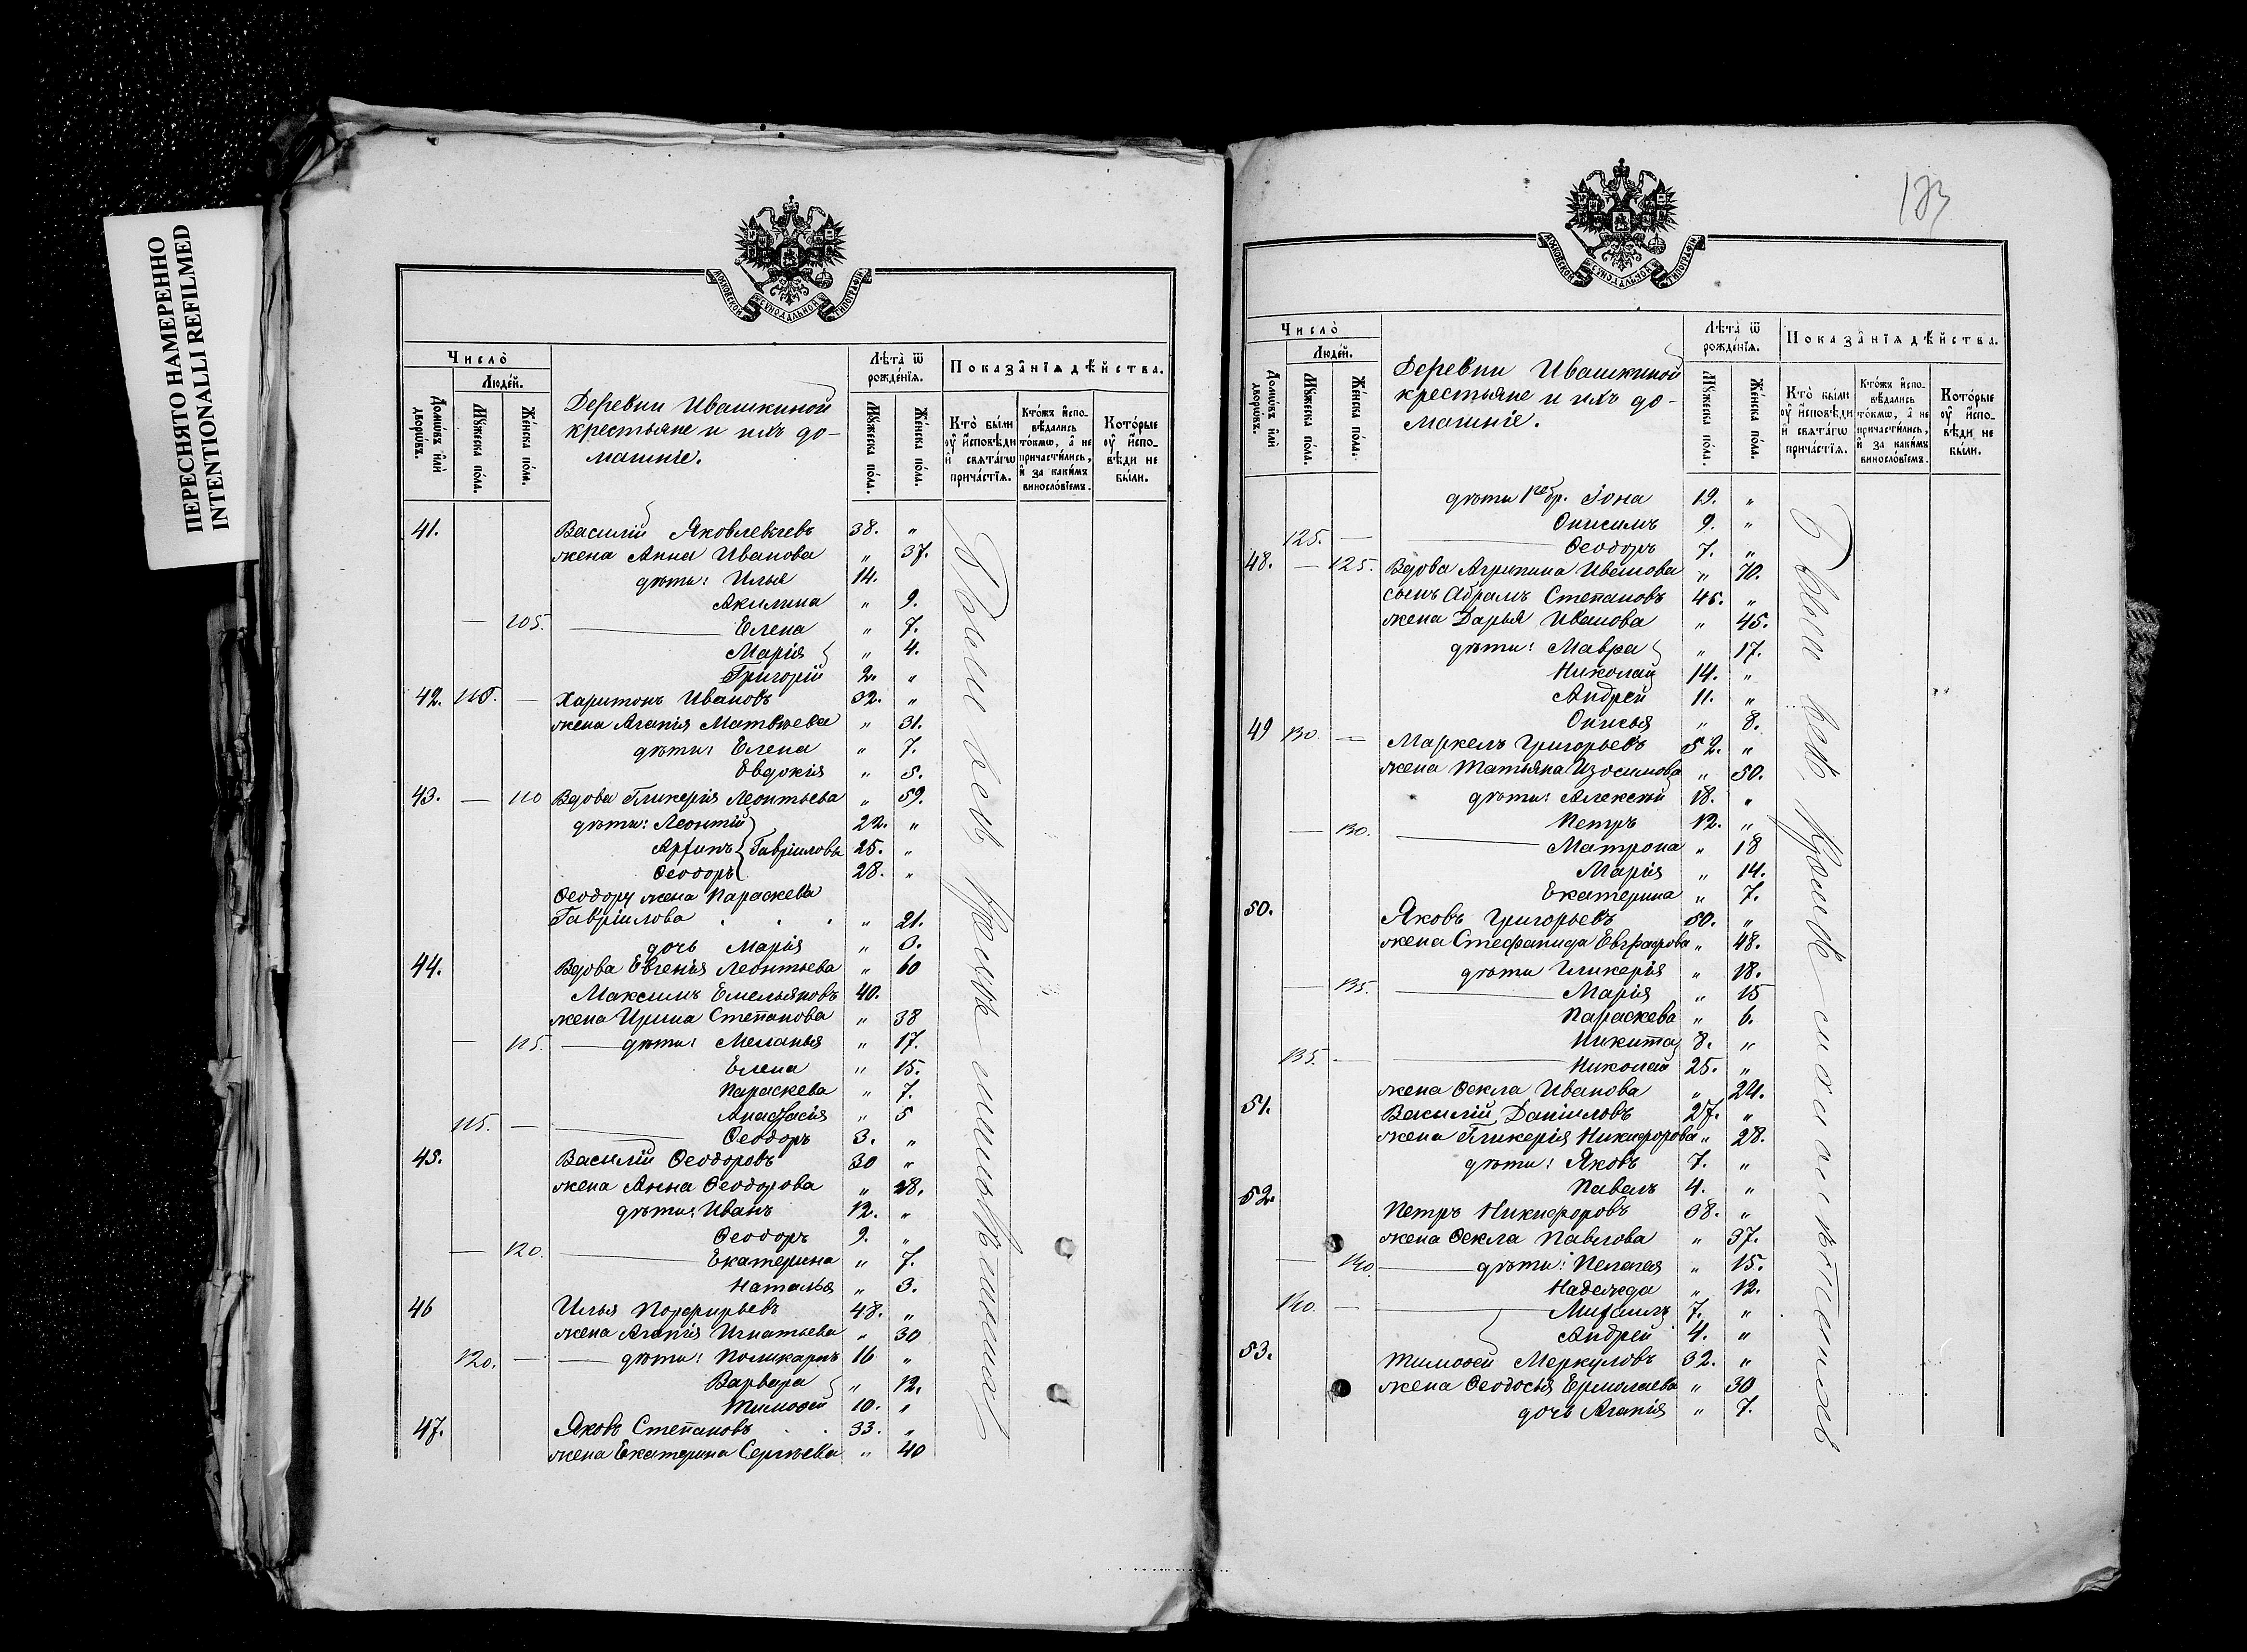 ПЕРЕСНЯТО НАМЕРЕННО
INTENTIONALLI REFILMED
МОСКОВСКОЙ СѴНОДАЛЬНОЙ ТИПОГРАФІИ
Число̀
Люде́й.
Домѡ́въ и҆лѝ дворѡ́въ.
Мꙋ́жеска по́ла.
Же́нска по́ла.
Деревни Ивашкиной
крестьяне и ихъ до-
машніе.
Лѣта̀ ѿ рожде́нїѧ.
Мꙋ́жеска по́ла.
Же́нска по́ла.
Показа̂нїѧ дѣ́йства.
Кто̀ бы́ли ᲂу҆ и҆́сповѣди и҆ свѧта́гѡ прича́стїѧ.
Кто́жъ и҆спо-вѣ́дались то́кмѡ, а҆ не причасти́лись, и҆ за каки́мъ виносло́вїемъ.
Кото́рые ᲂу҆ и҆́спо-вѣди не бы́ли.
41. Василій Яковлевъ 38. "
жена Анна Иванова " 37.
дѣти: Илья 14.
Акилина " 9.
— 105. Елена " 7.
Марія " 4.
Григорій 2. "
42. — Харитонъ Ивановъ 32. "
жена Агапія Матвѣева " 31.
дѣти: Елена " 7.
Евдокія " 5.
43. — 110 Вдова Гликерія Леонтьева " 59.
дѣти: Леонтій 22. "
Гавріиловы 25. "
Ѳеодоръ 28. "
Ѳеодору жена Параскева
Гавріилова " 21.
дочь Марія " 3.
44. Вдова Евгенія Леонтьева " 60
Максимъ Емельяновъ 40.
жена Ирина Степанова " 38
— 115. дѣти: Меланья " 17.
Елена " 15.
Параскева " 7.
Анастасія " 5
115. — Ѳеодоръ 3. "
45. Василій Ѳеодоровъ 30 "
жена Анна Ѳеодорова " 28.
дѣти: Иванъ 12. "
Ѳеодоръ 9. "
— 120. Екатерина " 7.
Наталья " 3.
46 Илья Порфирьевъ 48. "
жена Агапія Игнатьева " 30
120. — дѣти: Поликарпъ 16 "
Варвара " 12.
Тимоѳей 10. "
47. Яковъ Степановъ 33. "
жена Екатерина Сергѣева " 40
Были всѣ, кромѣ малолѣтнихъ
МОСКОВСКОЙ СѴНОДАЛЬНОЙ ТИПОГРАФІИ
Число̀
Люде́й.
Домѡ́въ и҆лѝ дворѡ́въ.
Мꙋ́жеска по́ла.
Же́нска по́ла.
Деревни Ивашкиной
крестьяне и ихъ до-
машніе.
Лѣта̀ ѿ рожде́нїѧ.
Мꙋ́жеска по́ла.
Же́нска по́ла.
Показа̂нїѧ дѣ́йства.
Кто̀ бы́ли ᲂу҆ и҆́сповѣди и҆ свѧта́гѡ прича́стїѧ.
Кто́жъ и҆спо-вѣ́дались то́кмѡ, а҆ не причасти́лись, и҆ за каки́мъ виносло́вїемъ.
Кото́рые ᲂу҆ и҆́спо-вѣди не бы́ли.
дѣти 1го бр. Іона 19. "
Онисимъ 9. "
125. — Ѳеодоръ 7. "
48. — 125. Вдова Агрипина Иванова " 70.
сынъ Абрамъ Степановъ "
жена Дарья Иванова " 45.
дѣти: Мавра " 17.
Николай 14. "
Андрей 11. "
Онисья " 8.
49 130. — Маркелъ Григорьевъ 52. "
жена Татьяна Изосимова " 50.
дѣти: Алексѣй 18. "
Петръ 12. "
— 130. Матрона " 18
Марія " 14.
Екатерина " 7.
50. Яковъ Григорьевъ 50. "
жена Стефанида Евграфова " 48.
дѣти Гликерія " 18.
— 135. Марія " 15
Параскева " 6.
Никита 8. "
135. — Николай 25. "
жена Ѳекла Иванова " 24.
51. Василій Даніиловъ 27. "
жена Гликерія Никифорова " 28.
дѣти: Яковъ 7. "
Павелъ 4. "
52. Петръ Никифоровъ 38. "
жена Ѳекла Павлова " 37.
— 140. дѣти: Пелагея " 15.
Надежда " 12.
140. — Михаилъ 7. "
Андрей 4. "
53. Тимоѳей Меркуловъ 32. "
жена Ѳеодосья Ермолаева " 30
дочь Агапія " 7.
Были всѣ, кромѣ малолѣтнихъ